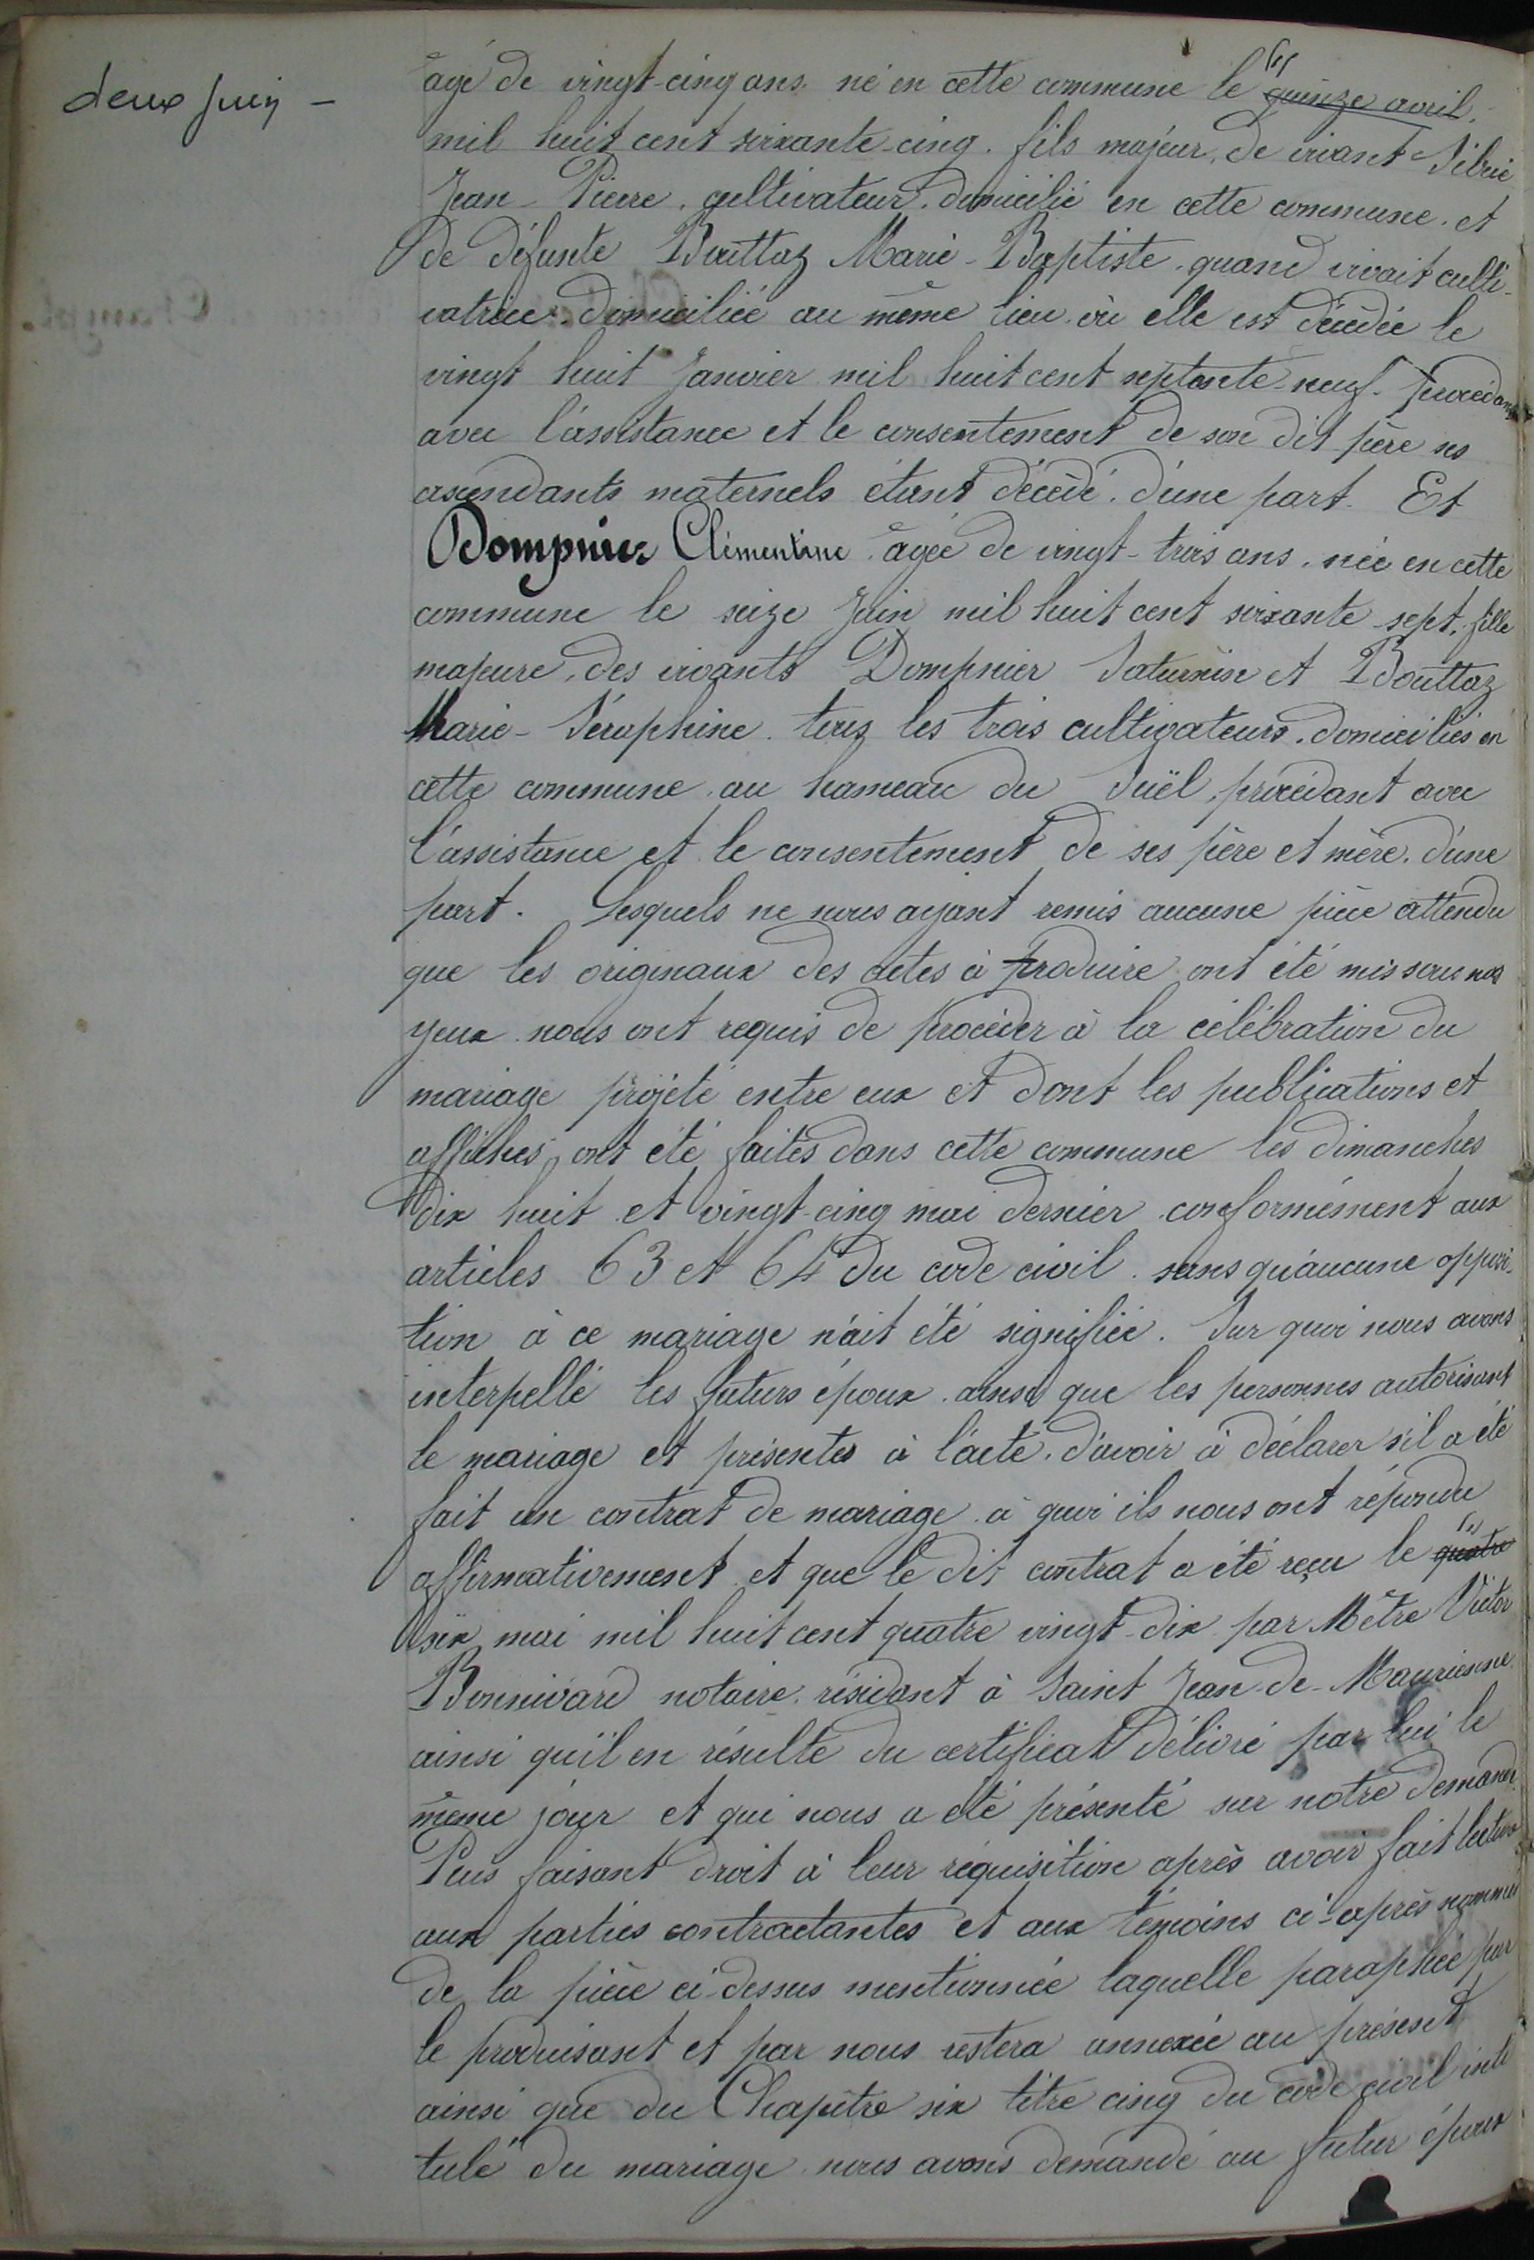 deux juin -
âgé de vingt-cinq ans, né en cette commune le quinze avril,
mil huit cent soixante-cinq, fils majeur, de vivant Sibué
Jean-Pierre, cultivateur, domicilié en cette commune, et
de défunte Bouttaz Marie-Baptiste, quand vivait culti-
vatrice domiciliée au même lieu où elle est décédée le
vingt huit Janvier mil huit cent septante-neuf. procédant
avec l'assistance et le consentement de son dit père ses
ascendants maternels étant décédé. d'une part. Et
Dompnier Clémentine âgée de vingt-trois ans, née en cette
commune le seize Juin mil huit cent soixante-sept, fille
majeure, des vivants Dompnier Saturnin et Bouttaz
Marie-Séraphine tous les trois cultivateurs, domiciliés en
cette commune au hameau du , procédant avec
l'assistance et le consentement de ses père et mère, d'une
part. Lesquels ne nous ayant remis aucune pièce attendu
que les originaux des actes à produire ont été mis sous nos
yeux nous ont requis de procéder à la célébration du
mariage projeté entre eux et dont les publications et
affiches ont été faites dans cette commune les dimanches
dix huit et vingt-cinq mai dernier conformément aux
articles 63 et 64 du code civil sans qu'aucune opposi-
tion à ce mariage n'ait été signifiée. Sur quoi nous avons
interpellé les futurs époux ainsi que les personnes autorisant
le mariage et présentes à l'acte, d'avoir à déclarer s'il a été
fait un contrat de mariage à quoi ils nous ont répondu
affirmativement et que le dit contrat a été reçu le quatre
six mai mil huit cent quatre vingt-dix par Mêtre Victor
Bonnivard notaire résidant à Saint Jean-de-Maurienne
ainsi qu'il en résulte du certificat délivré par lui le
même jour et qui nous a été présenté sur notre demande
Puis faisant droit à leur réquisition après avoir fait lecture
aux parties contractantes et aux témoins ci-après nommés
de la pièce ci-dessus mentionnée laquelle paraphée par
le produisant et par nous restera annexée au présent
ainsi que du Chapitre six titre cinq du code civil inti
tulé du mariage nous avons demandé au futur époux